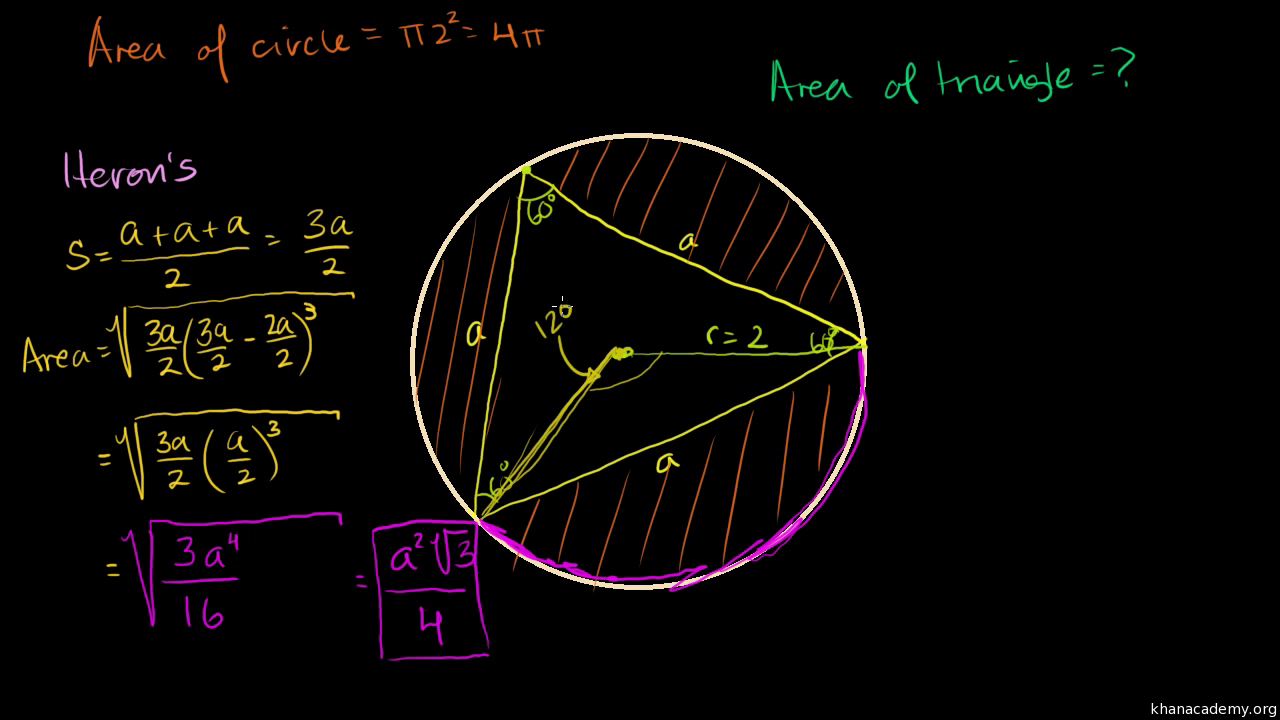 Area of circle = π2² = 4π
Area of triangle = ?
Heron's
S = (a + a + a)/2 = 3a/2
Area = √(3a/2 (3a/2 - 2a/2)³)
= √(3a/2 (a/2)³)
= √(3a⁴/16) = a²√3/4
60°
a
a
12°
r = 2
60°
a
60°
khanacademy.org